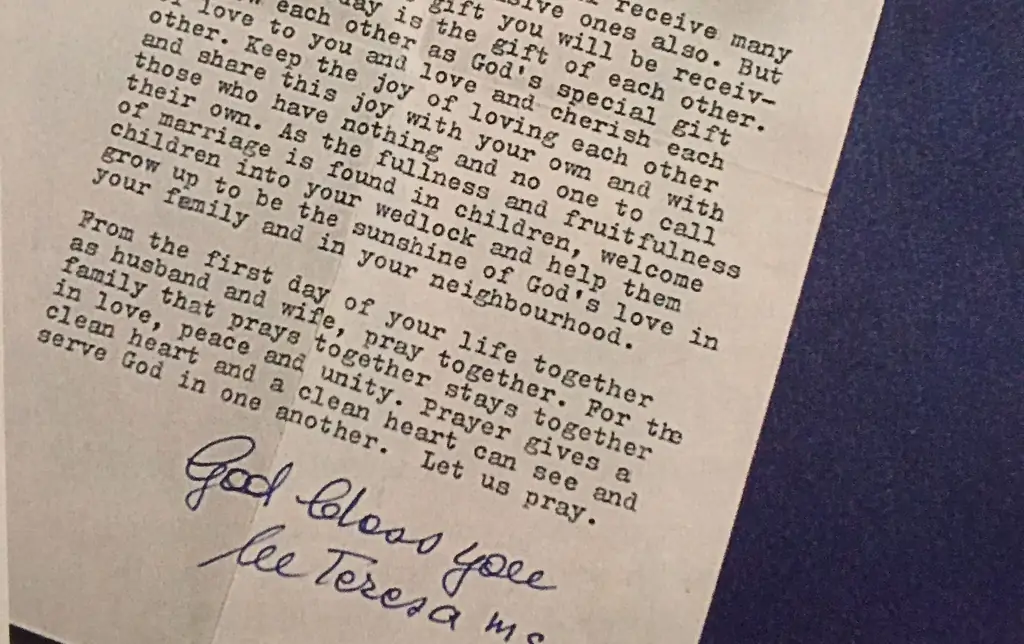 receive many
sive ones also. But
gift you will be receiv-
day is the gift of each other.
each other as God's special gift
love to you and love and cherish each
other. Keep the joy of loving each other
and share this joy with your own and with
those who have nothing and no one to call
their own. As the fullness and fruitfulness
of marriage is found in children, welcome
children into your wedlock and help them
grow up to be the sunshine of God's love in
your family and in your neighbourhood.
From the first day of your life together
as husband and wife, pray together. For the
family that prays together stays together
in love, peace and unity. Prayer gives a
clean heart and a clean heart can see and
serve God in one another. Let us pray.
God bless you
Teresa mc